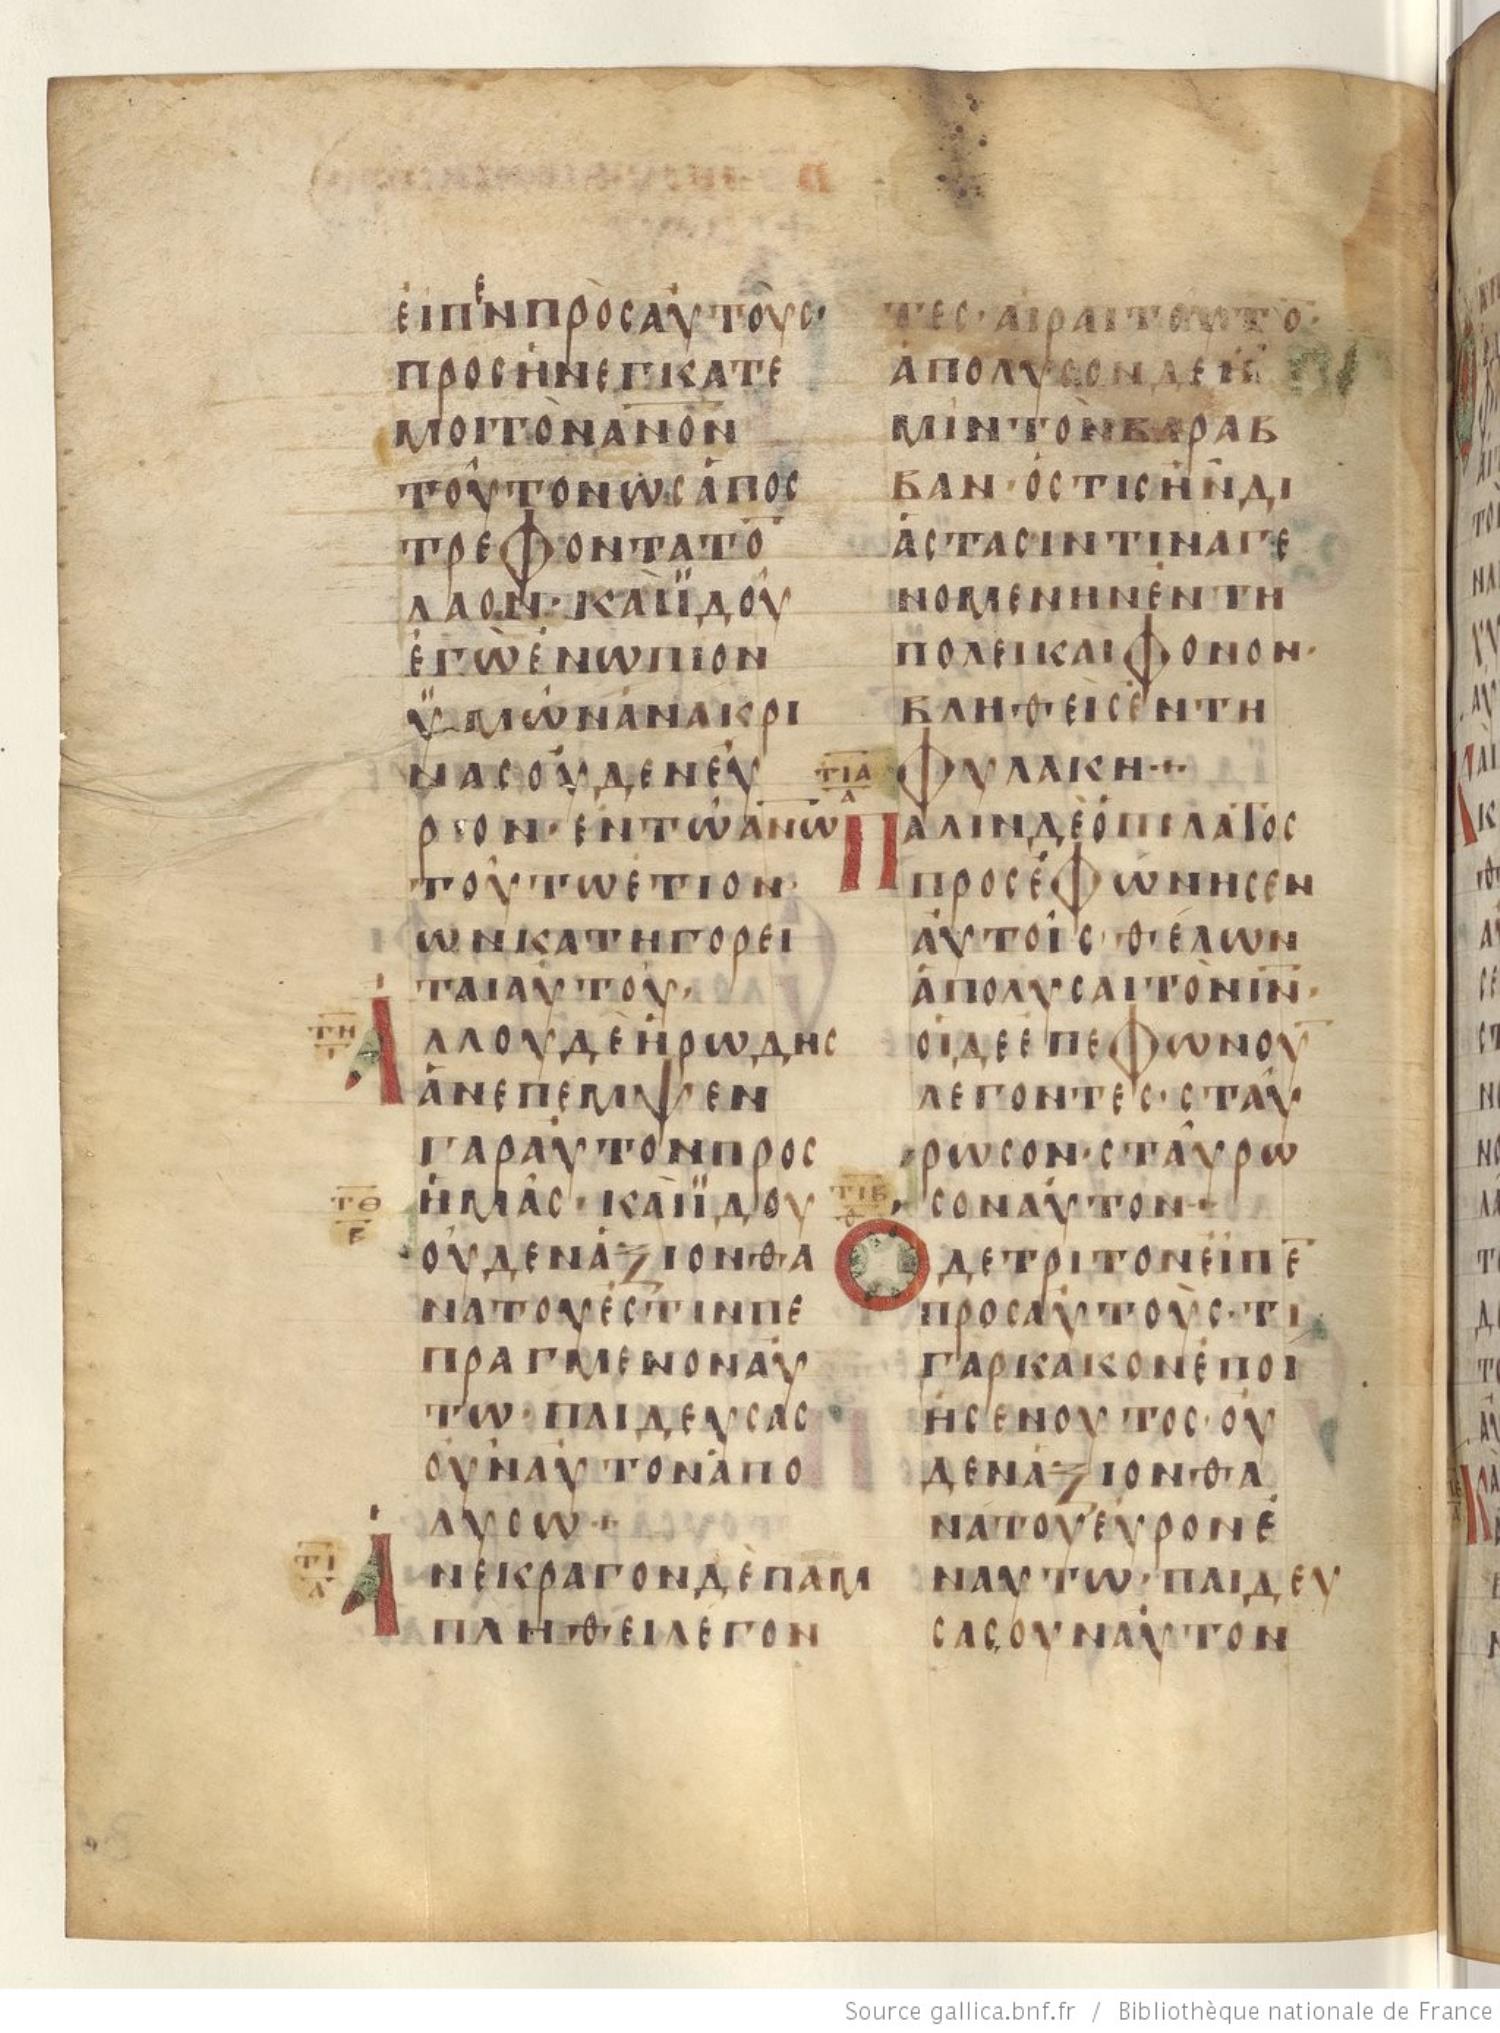 ΕΙΠΕΝΠΡΟΣΑΥΤΟΥΣ·
ΠΡΟΣΗΝΕΓΚΑΤΕ
ΜΟΙΤΟΝΑΝΟΝ
ΤΟΥΤΟΝΩΣΑΠΟΣ
ΤΡΕΦΟΝΤΑΤΟ
ΛΑΟΝ·ΚΑΙΪΔΟΥ
ΕΓΩΕΝΩΠΙΟΝ
ΫΜΩΝΑΝΑΚΡΙ
ΝΑΣΟΥΔΕΝΕΥ
ΡΟΝ·ΕΝΤΩΑΝΩ
ΤΟΥΤΩΕΤΙΟΝ·
ΩΝΚΑΤΗΓΟΡΕΙ
ΤΑΙΑΥΤΟΥ·
ΤΗ
ΑΛΛΟΥΔΕΗΡΩΔΗΣ
ΑΝΕΠΕΜΨΕΝ
ΓΑΡΑΥΤΟΝΠΡΟΣ
ΤΘ
Β
ΗΜΑΣ·ΚΑΙΪΔΟΥ
ΟΥΔΕΝΑΞΙΟΝΘΑ
ΝΑΤΟΥΕΣΤΙΝΠΕ
ΠΡΑΓΜΕΝΟΝΑΥ
ΤΩ·ΠΑΙΔΕΥΣΑΣ
ΟΥΝΑΥΤΟΝΑΠΟ
ΛΥΣΩ·+
ΤΙ
Α
ΑΝΕΚΡΑΓΟΝΔΕΠΑΜ
ΠΛΗΘΕΙΛΕΓΟΝ
ΤΕΣ·ΑΙΡΑΙΤΟΥΤΟ·
ΑΠΟΛΥΣΟΝΔΕΗ
ΜΙΝΤΟΝΒΑΡΑΒ
ΒΑΝ·ΟΣΤΙΣΗΝΔΙ
ΑΣΤΑΣΙΝΤΙΝΑΓΕ
ΝΟΜΕΝΗΝΕΝΤΗ
ΠΟΛΕΙΚΑΙΦΟΝΟΝ·
ΒΛΗΘΕΙΣΕΝΤΗ
ΦΥΛΑΚΗ·+
ΤΙΑ
Α
ΠΑΛΙΝΔΕΟΠΙΛΑΤΟΣ
ΠΡΟΣΕΦΩΝΗΣΕΝ
ΑΥΤΟΙΣ·ΘΕΛΩΝ
ΑΠΟΛΥΣΑΙΤΟΝΙΝ·
ΟΙΔΕΕΠΕΦΩΝΟΥ
ΛΕΓΟΝΤΕΣ·ΣΤΑΥ
ΡΩΣΟΝ·ΣΤΑΥΡΩ
ΣΟΝΑΥΤΟΝ·+
ΤΙΒ
Θ
ΟΔΕΤΡΙΤΟΝΕΙΠΕ
ΠΡΟΣΑΥΤΟΥΣ·ΤΙ
ΓΑΡΚΑΚΟΝΕΠΟΙ
ΗΣΕΝΟΥΤΟΣ·ΟΥ
ΔΕΝΑΞΙΟΝΘΑ
ΝΑΤΟΥΕΥΡΟΝΕ
ΝΑΥΤΩ·ΠΑΙΔΕΥ
ΣΑΣΟΥΝΑΥΤΟΝ
Source gallica.bnf.fr / Bibliothèque nationale de France